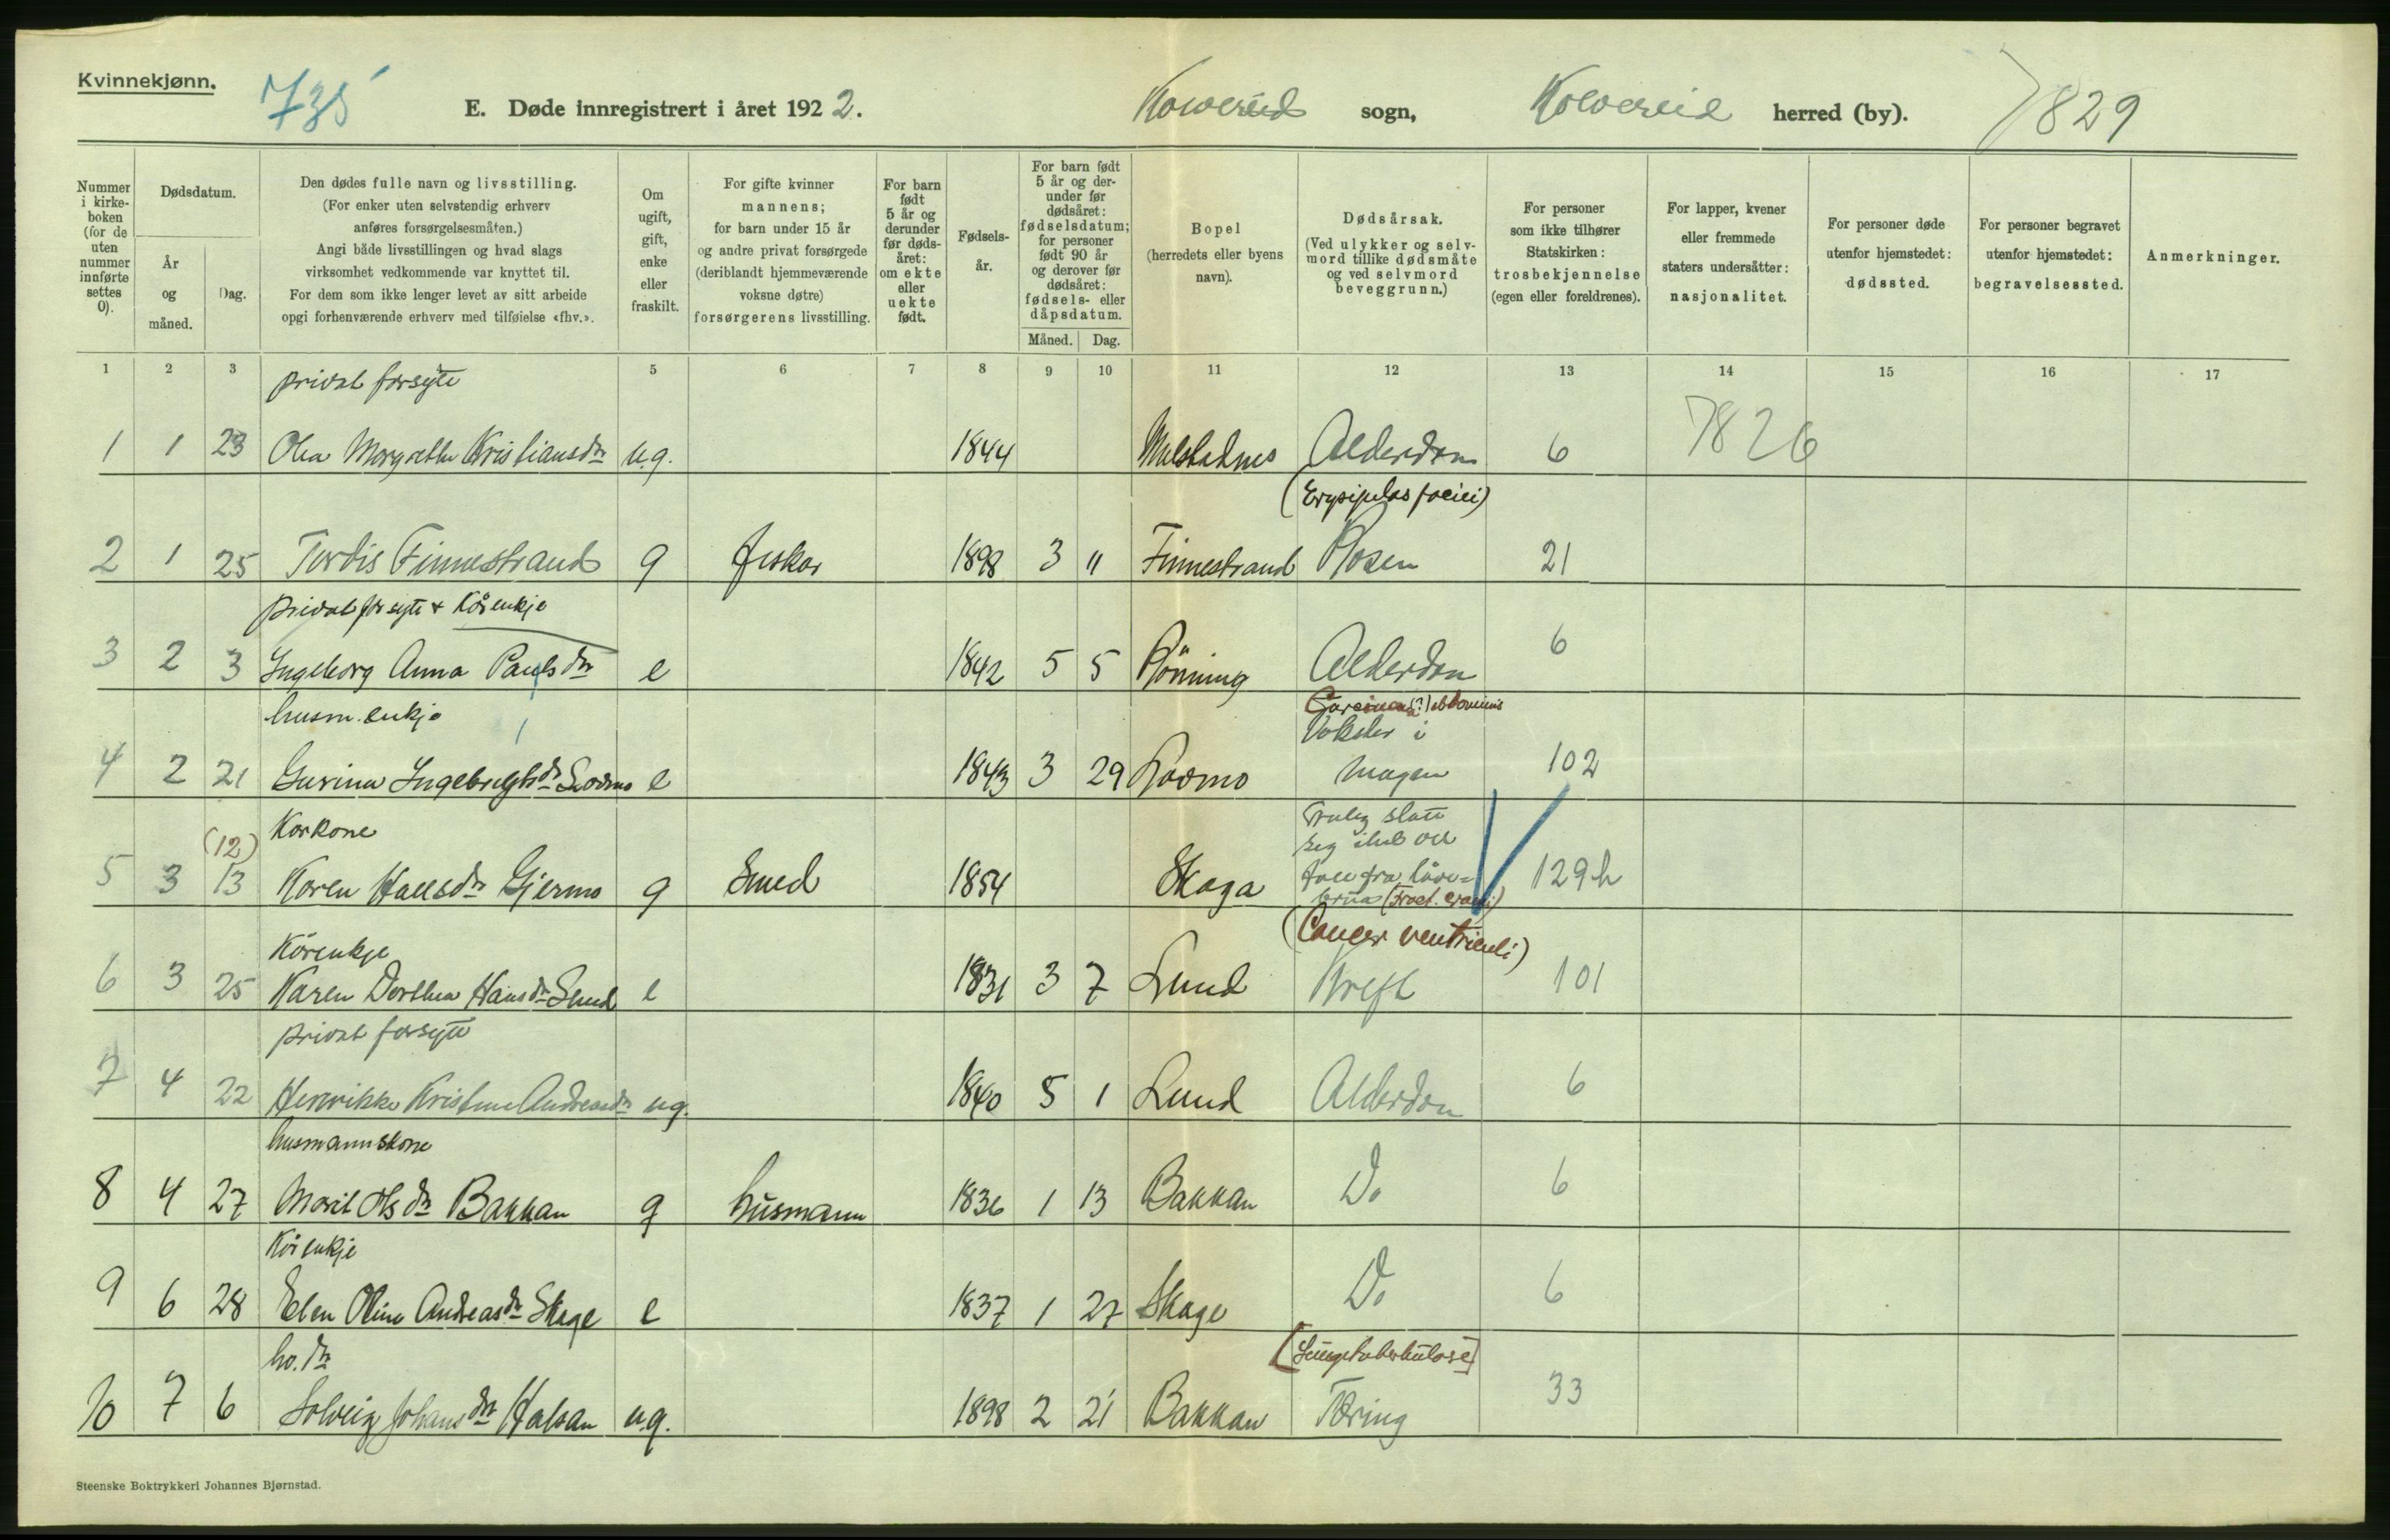 Kvinnekjønn.
735
E. Døde innregistrert i året 1922.
Kolvereid sogn, Kolvereid herred (by).
7829
Nummer i kirke-boken (for de uten nummer innførte settes 0).
Dødsdatum.
År og måned.
Dag.
Den dødes fulle navn og livsstilling.
(For enker uten selvstendig erhverv
anføres forsørgelsesmåten.)
Angi både livsstillingen og hvad slags
virksomhet vedkommende var knyttet til.
For dem som ikke lenger levet av sitt arbeide
opgi forhenværende erhverv med tilføielse «fhv.».
Om ugift, gift, enke eller fraskilt.
For gifte kvinner
mannens;
for barn under 15 år
og andre privat forsørgede
(deriblandt hjemmeværende
voksne døtre)
forsørgerens livsstilling.
For barn født 5 år og derunder før døds-året: om ekte eller uekte født.
Fødsels-år.
For barn født 5 år og der-under før dødsåret: fødselsdatum; for personer født 90 år og derover før dødsåret: fødsels- eller dåpsdatum.
Måned. Dag.
Bopel
(herredets eller byens
navn).
Dødsårsak.
(Ved ulykker og selv-
mord tillike dødsmåte
og ved selvmord
beveggrunn.)
For personer
som ikke tilhører
Statskirken:
trosbekjennelse
(egen eller foreldrenes).
For lapper, kvener
eller fremmede
staters undersåtter:
nasjonalitet.
For personer døde
utenfor hjemstedet:
dødssted.
For personer begravet
utenfor hjemstedet:
begravelsessted.
Anmerkninger.
1 2 3 5 6 7 8 9 10 11 12 13 14 15 16 17
privat forsytt
7826
1 1 23 Olea Margrethe Kristiansdtr ug. 1844 Alderdom 6
(Erysipelas faciei)
2 1 25 Tordis Finnestrand g fiskar 1898 3 " Finnestrand Rosen 21
privat forsytt + Kårenkje
3 2 3 Ingeborg Anna Paulsdtr e 1842 5 5 Rønning Alderdom 6
husm. enkje
Carcinoma (?) abdominis
Vokster i
4 2 21 Gurina Ingebrigtsdtr e 1843 3 29 magen 102
Korkone
(12)
Truleg slått
seg ihel
5 3 13 Karen Hallsdtr Gjermo g Smed 1854 Skaga fall fra låve= 129h
(Fract. cranii)
Kårenkje
(Cancer ventriculi)
6 3 25 Karen Dorthea Hansdtr Lund e 1831 3 7 Lund Kreft 101
privat forsytt
7 4 22 Henrikke Kristine Andreasdtr ug. 1840 5 1 Lund Alderdom 6
husmannskone
8 4 27 Marit Olsdtr Bakkan g husmann 1836 1 13 Bakkan Do 6
Kårenkje
9 6 28 Elen Oline Andreasdtr Skage e 1837 1 27 Skage Do 6
ho. dtr
[Lungetuberkulose]
10 7 6 Solveig Johansdtr Halsan ug. 1898 2 21 Bakkan Tæring 33
Steenske Boktrykkeri Johannes Bjørnstad.